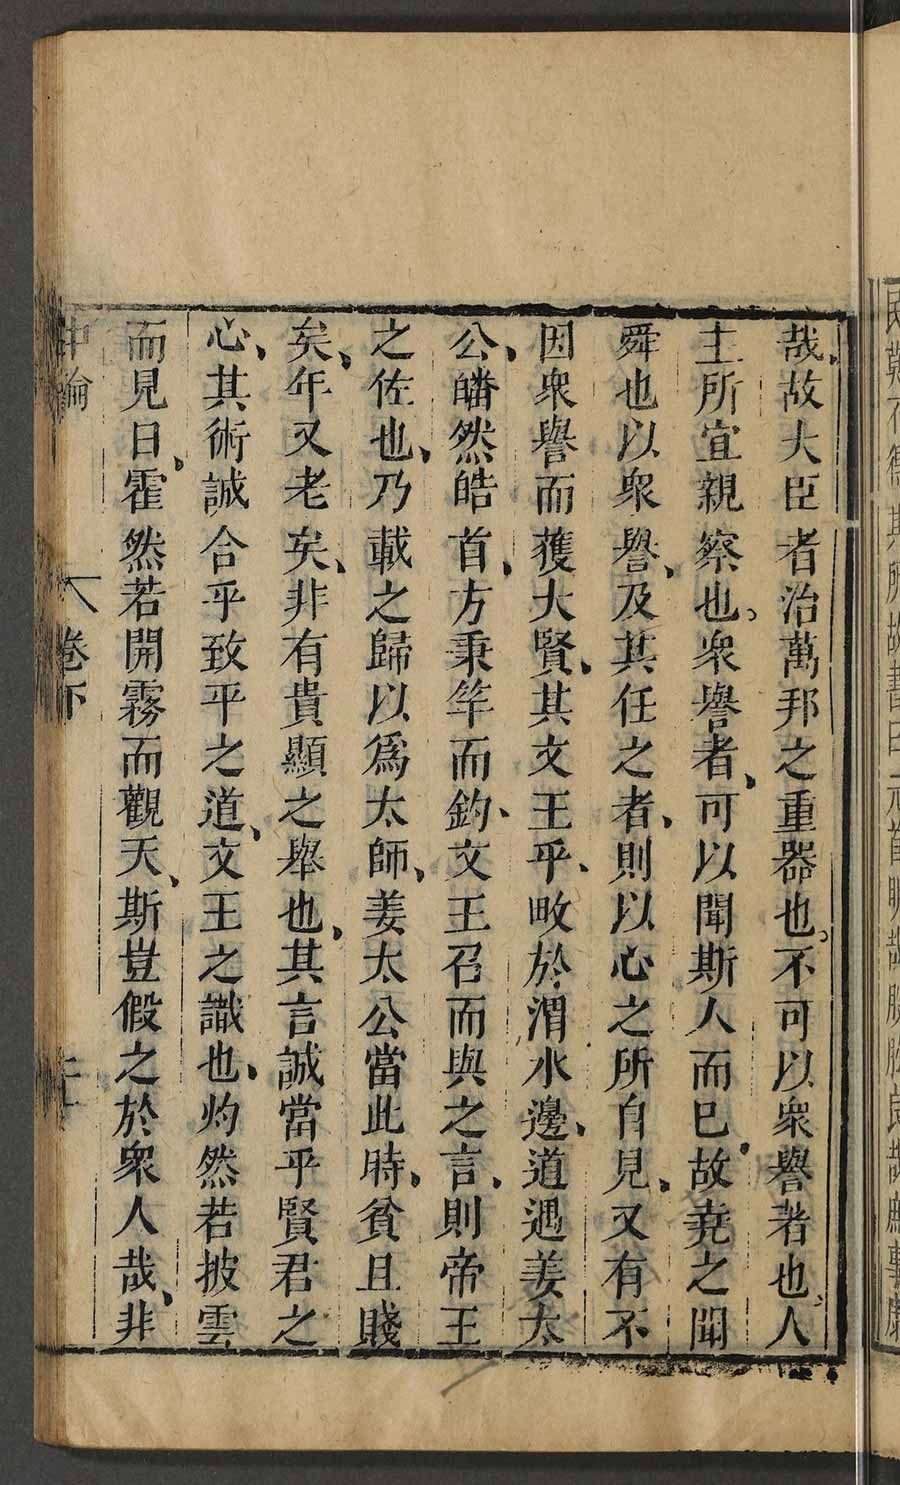 哉、故大臣者治萬邦之重器也。不可以衆譽著也、人
主所宜親察也。衆譽者、可以聞斯人而已、故堯之聞
舜也以衆譽、及其任之者、則以心之所自見、又有不
因衆譽而獲大賢、其文王乎、畋於渭水邊、道遇姜太
公、皤然皓首、方秉竿而釣、文王召而與之言、則帝王
之佐也、乃載之歸以爲太師、姜太公當此時、貧且賤
矣、年又老矣、非有貴顯之舉也、其言誠當乎賢君之
心、其術誠合乎致平之道、文王之識也、灼然若披雲
而見日、霍然若開霧而觀天、斯豈假之於衆人哉、非
中論 卷下